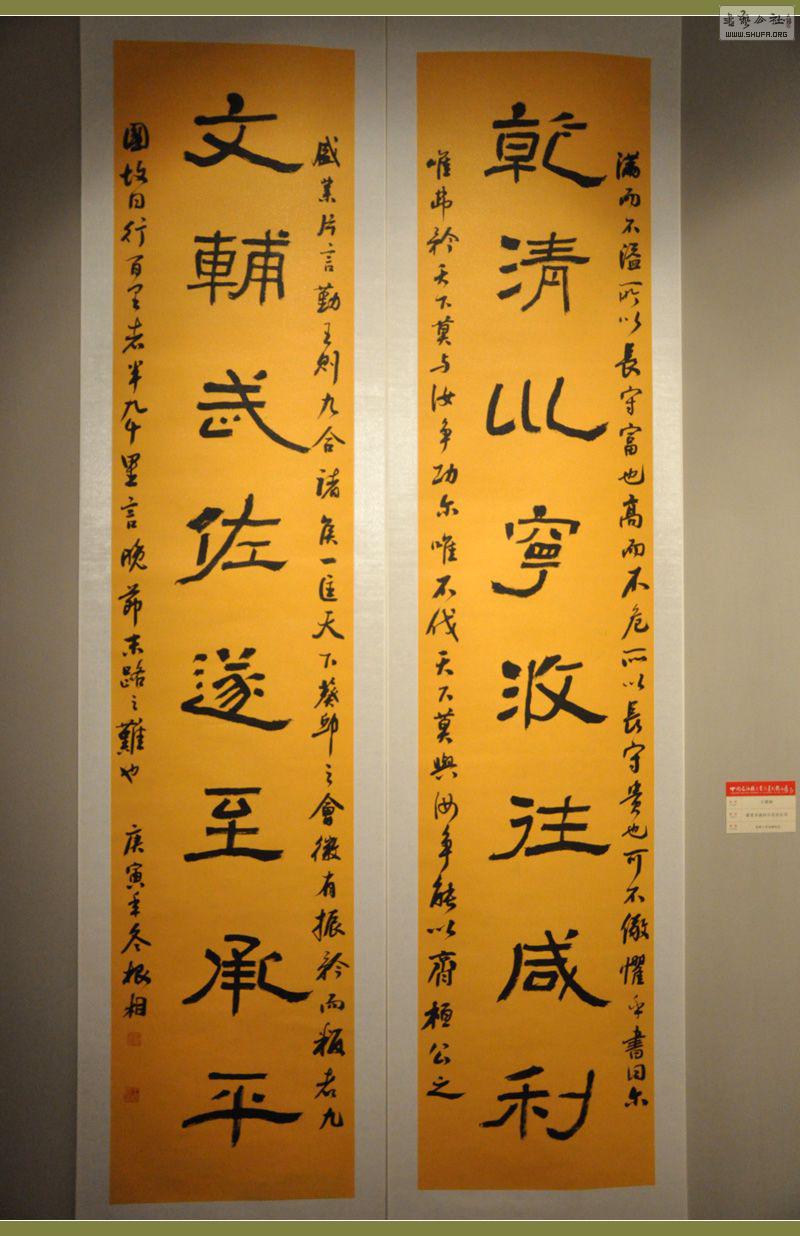 满而不溢所以長守富也高而不危所以長守貴也可不儆懼乎書曰尔
乾清巛寧攸往咸利
唯弗矜天下莫与汝争功尔唯不伐天下莫與汝争能以齊桓公之
盛業片言勤王則九合諸矦一匡天下葵邱之會微有振矜而叛者九
文輔武佐遂至承平
國故曰行百里者半九十里言晚節末路之難也 庚寅年冬根相
書藝公社
WWW.SHUFA.ORG